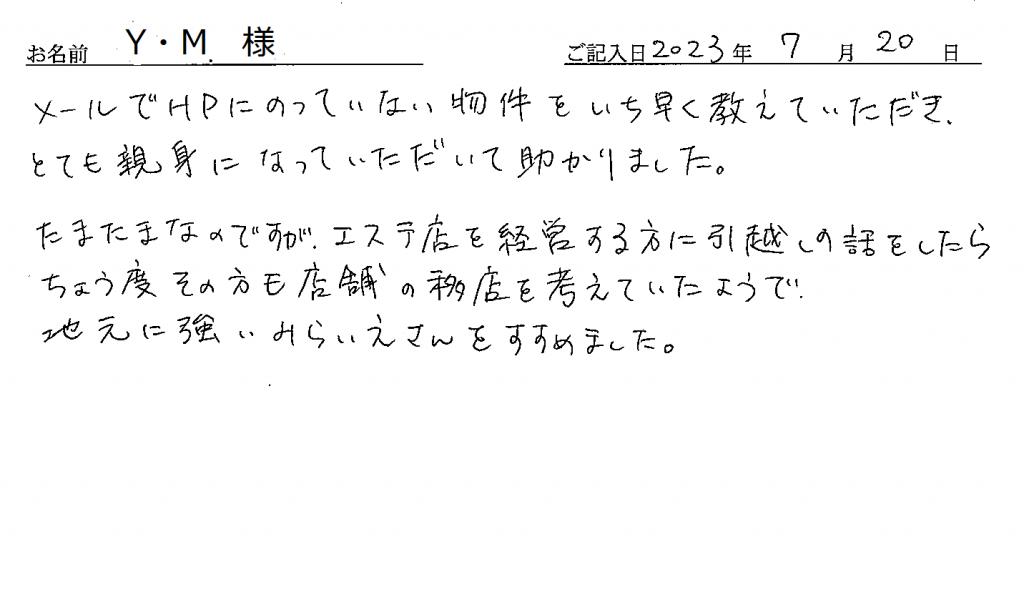 お名前 Y・M 様 ご記入日2023年 7 月 20 日
メールでHPにのっていない物件をいち早く教えていただき、
とても親身になっていただいて助かりました。
たまたまなのですが、エステ店を経営する方に引越しの話をしたら
ちょう度その方も店舗の移店を考えていたようで、
地元に強いみらいえさんをすすめました。